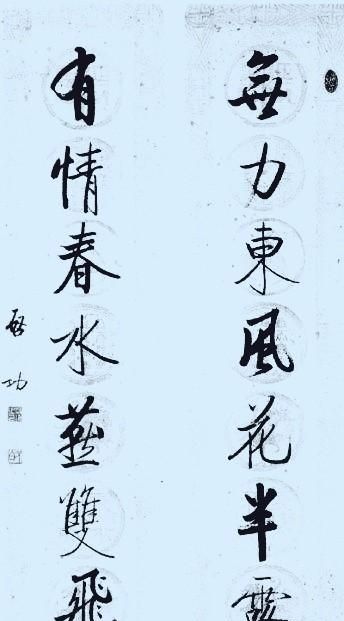 無力東風花半
有情春水燕雙飛
啓功